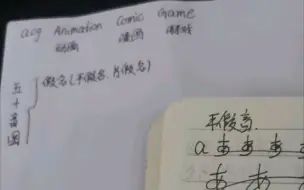 acg Animation Comic Game
动画 漫画 游戏
五十音图
假名(平假名、片假名)
平假名
a あ あ あ
あ あ